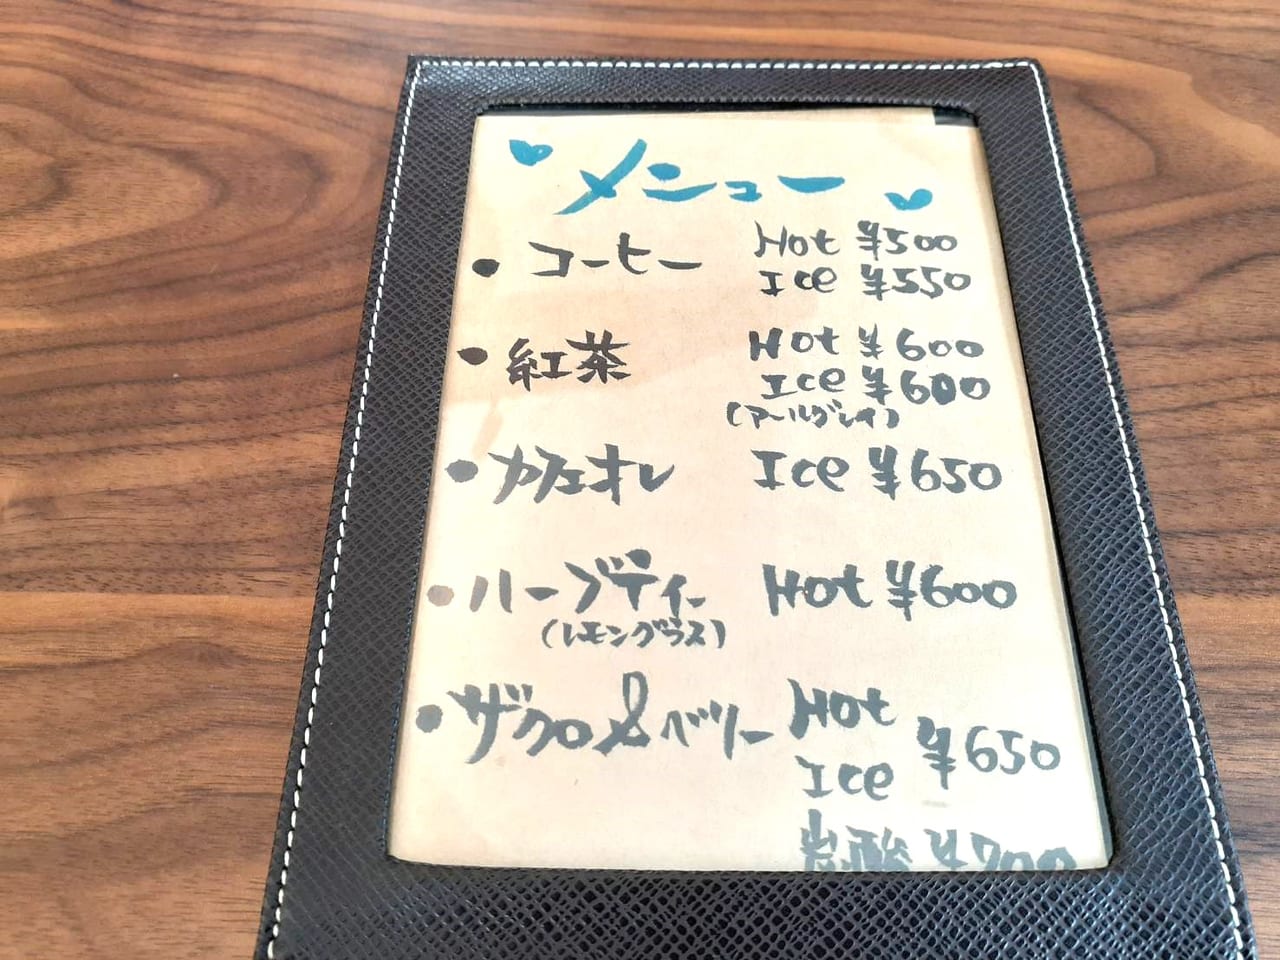 メニュー
・コーヒー Hot ¥500
Ice ¥550
・紅茶 Hot ¥600
Ice ¥600
(アールグレイ)
・カフェオレ Ice ¥650
・ハーブティー Hot ¥600
(レモングラス)
・ザクロ&ベリー Hot
Ice ¥650
炭酸 ¥700